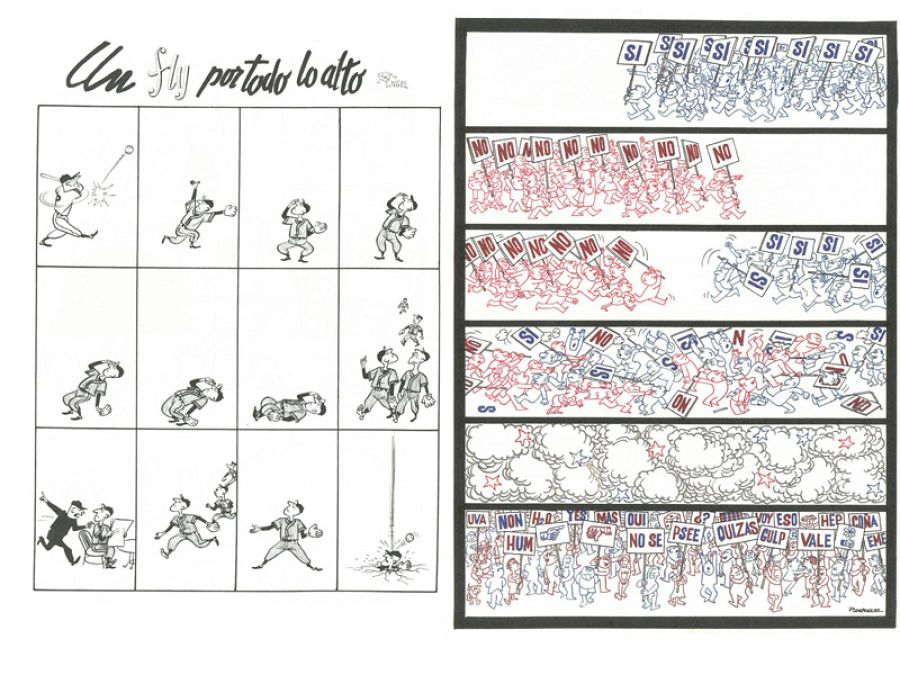 Un fly por todo lo alto
SI SI SI SI SI SI SI SI
NO NO NO NO NO NO NO NO
NO NO NO NO NO
SI SI SI SI
SI SI
SI NO S N I S SI
SI
NO NO
S
UVA NON H2O YES MAS OUI ¿? VOY ESO HEP COÑA
HUM NO SE PSEE QUIZAS GULP VALE EME